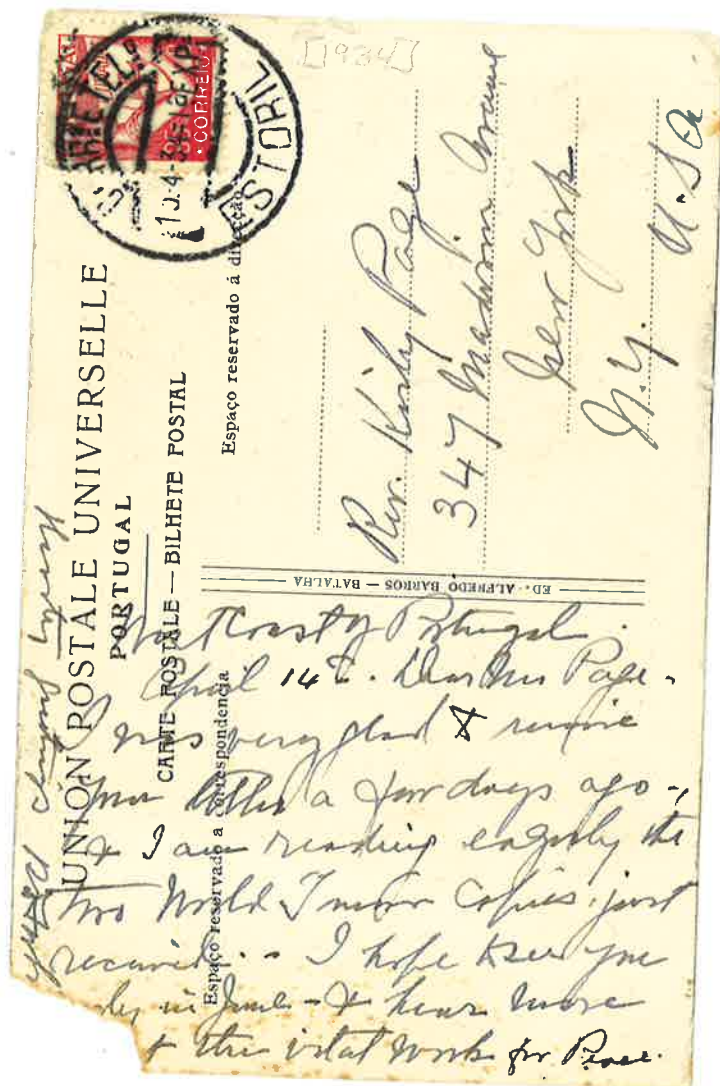 [1934]
CORREIO
ESTORIL
UNION POSTALE UNIVERSELLE
PORTUGAL
CARTE POSTALE — BILHETE POSTAL
Espaço reservado a correspondencia
Espaço reservado á direcção
ED. ALFREDO BARROS — BATALHA
Rev. Kirby Page
347 Madison Avenue
New York
N.Y. U.S.A
West Coast of Portugal.
April 14th. Dear Mr Page -
I was very glad to receive
your letter a few days ago -,
& I am reading eagerly the
two World Tomorrow Copies just
received. - I hope to see you
in June - & hear more
this vital work for Peace.